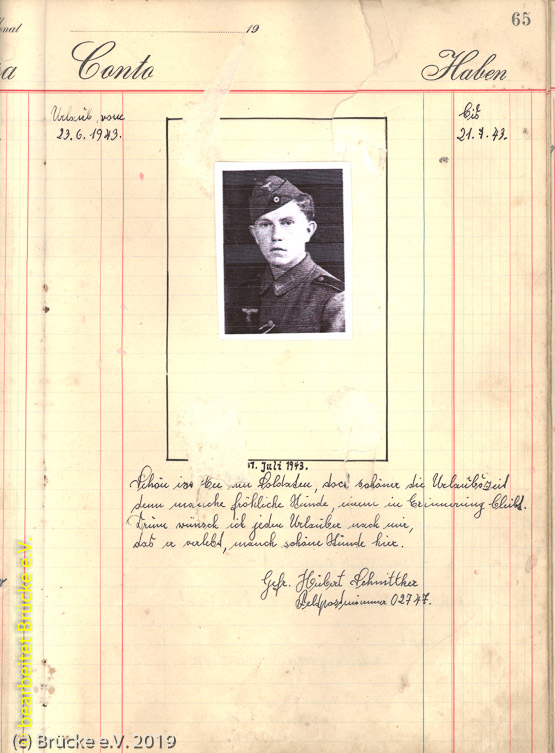 65
19
Conto
Haben
Urlaub vom
23.6.1943.
bis
21.7.43.
11. Juli 1943.
Schön ist bei den Soldaten, doch schöner die Urlaubszeit
denn manche fröhliche Stunde, einem in Erinnerung bleibt.
Drum wünsch ich jeden Urlauber nach mir,
das er verlebt, manch schöne Stunde hier.
Gefr. Hubert Schnittker
Feldpostnummer 02747.
© bearbeitet Brücke e.V.
(c) Brücke e.V. 2019